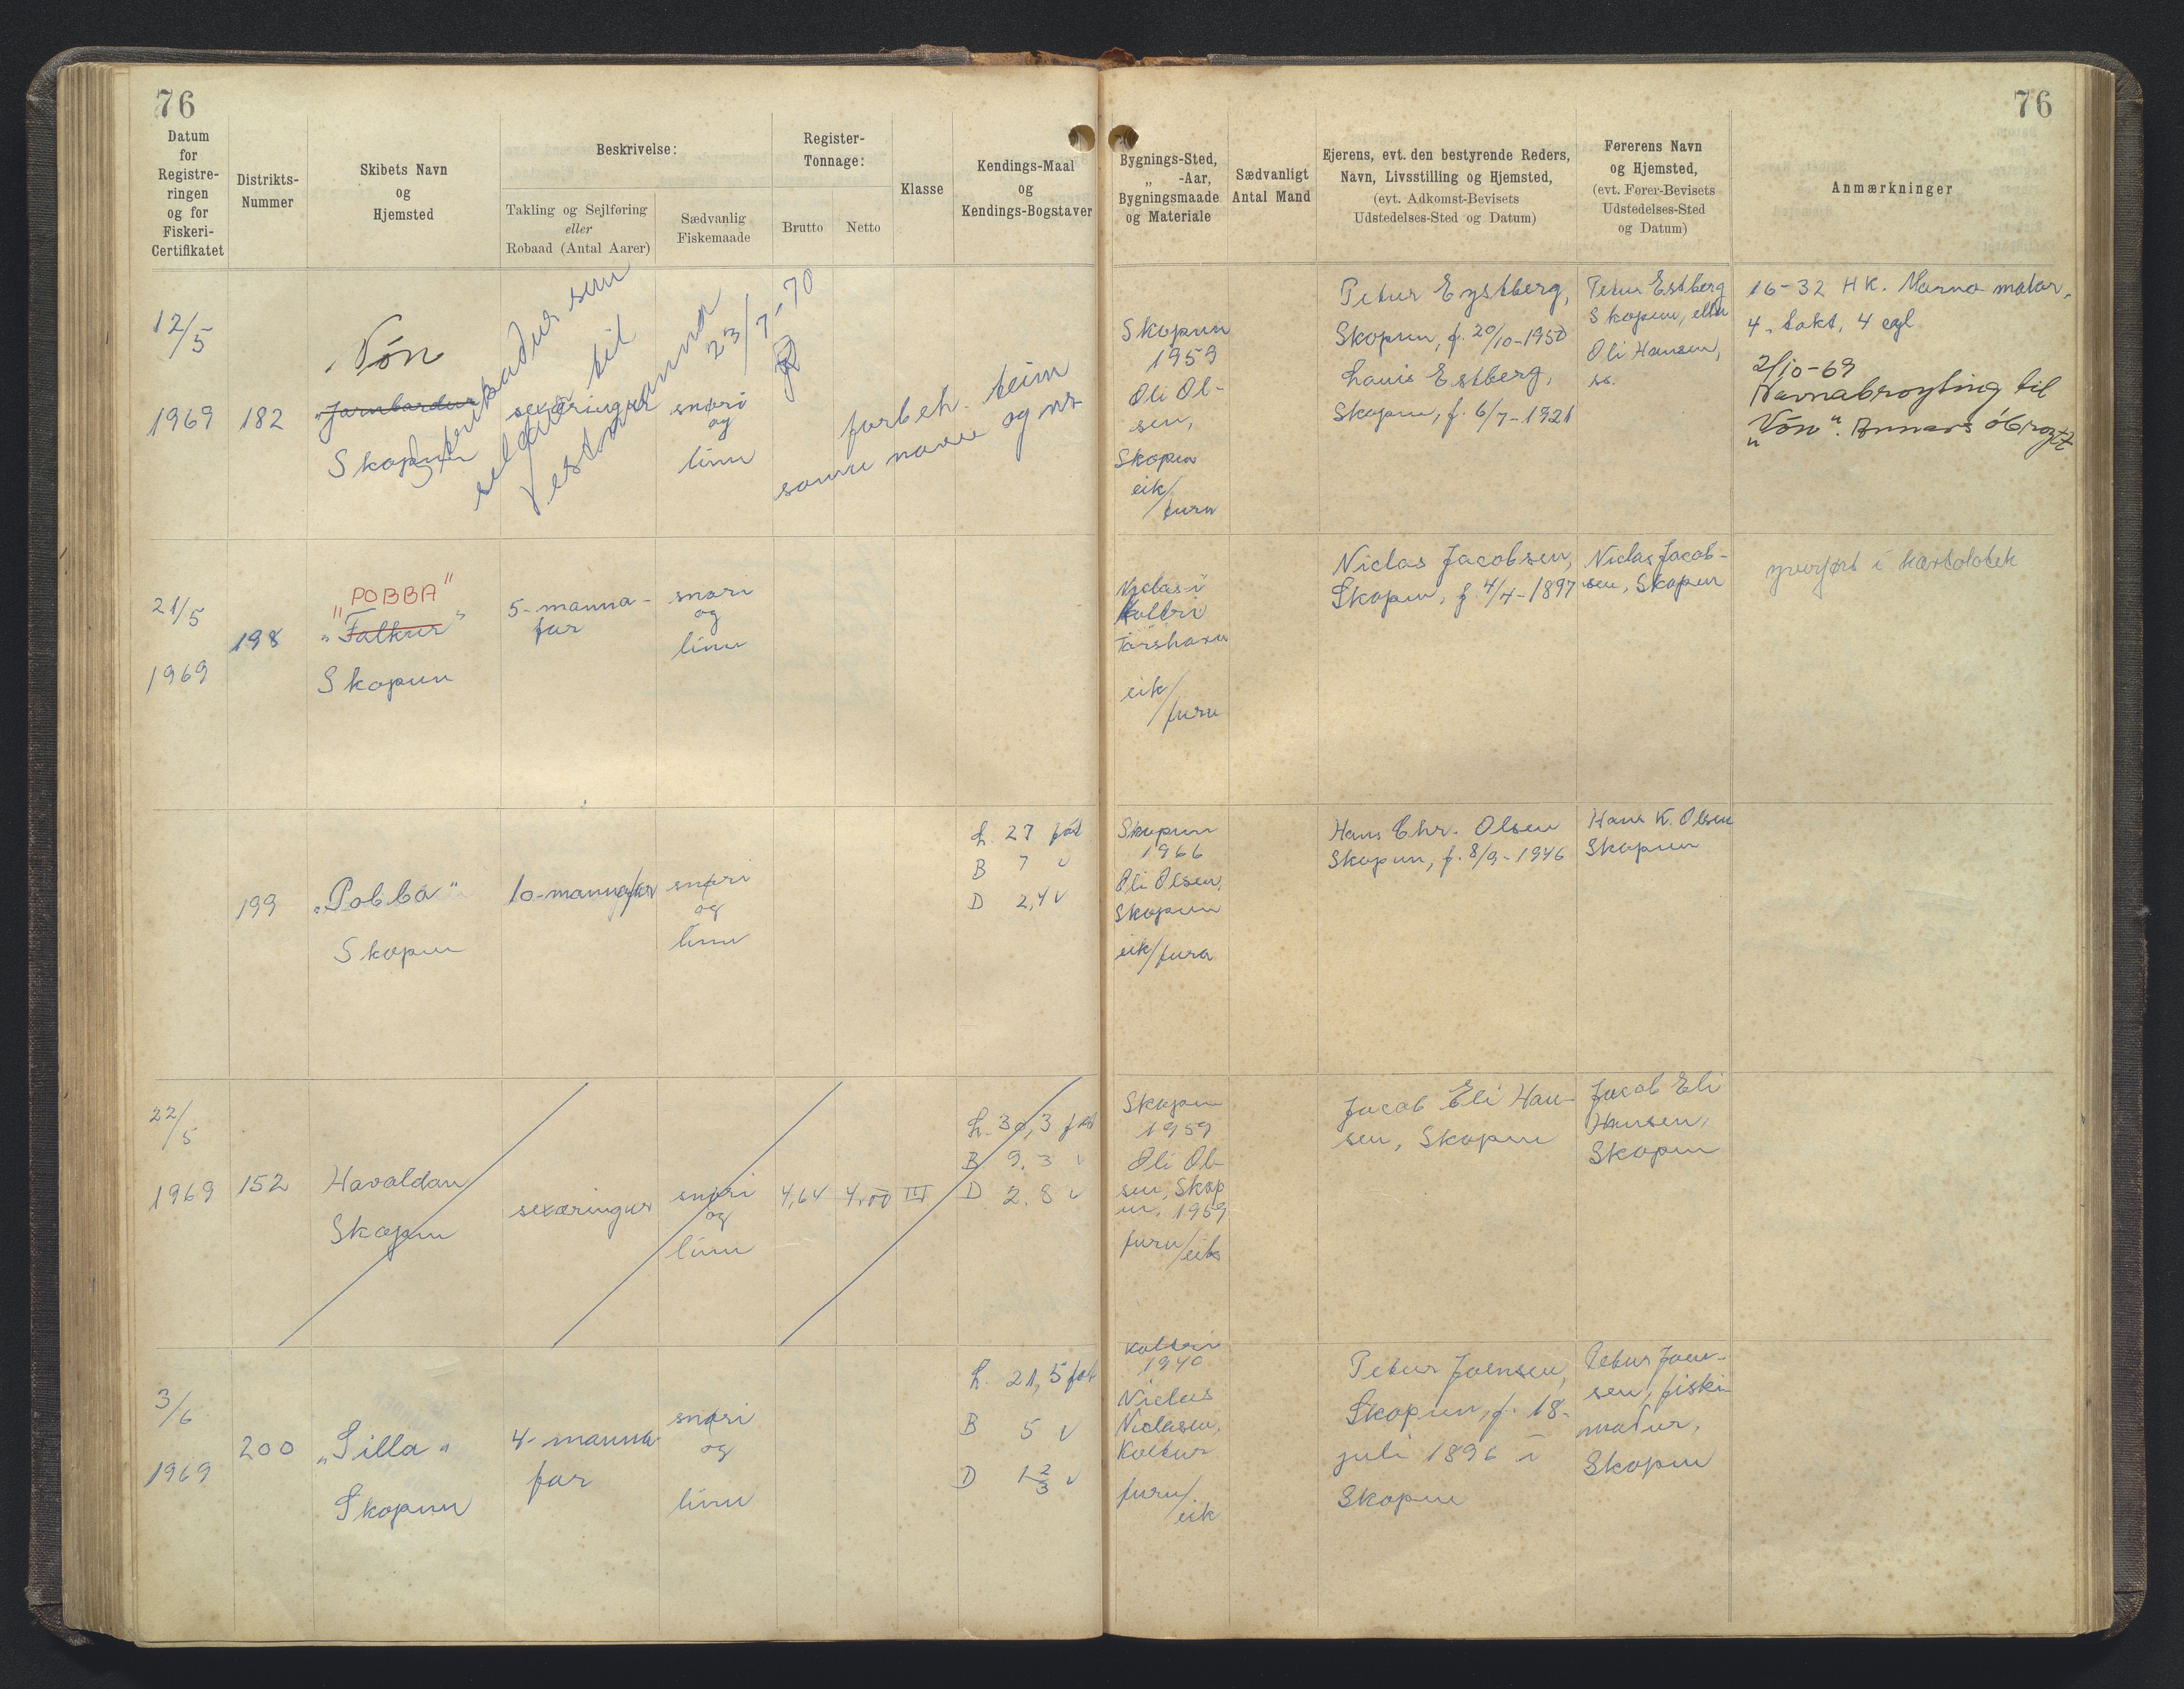 76
76
Datum
for
Registre-
ringen
og for
Fiskeri-
Certifikatet
Distrikts-
Nummer
Skibets Navn
og
Hjemsted
Beskrivelse:
Takling og Sejlføring
eller
Robaad (Antal Aarer)
Sædvanlig
Fiskemaade
Register-
Tonnage:
Brutto
Netto
Klasse
Kendings-Maal
og
Kendings-Bogstaver
Bygnings-Sted,
„ -Aar,
Bygningsmaade
og Materiale
Sædvanligt
Antal Mand
Ejerens, evt. den bestyrende Reders,
Navn, Livsstilling og Hjemsted,
(evt. Adkomst-Bevisets
Udstedelses-Sted og Datum)
Førerens Navn
og Hjemsted,
(evt. Fører-Bevisets
Udstedelses-Sted
og Datum)
Anmærkninger
12/5
1969
182
Vón
Skopun
Strikaður sum
seldur til
Vestmanna
23/7-70
sexæringur
snøri
og
línu
forbeh. teim
sama navn og nr
Skopun
1959
Óli Ol-
sen,
Skopun
eik/
furu
Petur Eystberg,
Skopun, f. 20/10-1950
Louis Estberg,
Skopun, f. 6/7-1921
Petur Estberg
Skopun, ella
Óli Hansen,
ss.
16-32 HK. Marna motor,
4. takt, 4 cyl
2/10-69
Navnabroyting til
"Vón". Annars óbroytt
21/5
1969
198
"POBBA"
„Falkur"
Skopun
5-manna-
far
snøri
og
línu
Koltri
Tórshavn
eik/
furu
Niclas Jacobsen,
Skopun, f. 4/4-1897
Niclas Jacob-
sen, Skopun
yvirført í kartotek
199
„Pobba"
Skopun
10-mannafar
snøri
og
línu
L. 27 fót
B 7 "
D 2,4 "
Skopun
1966
Óli Olsen,
Skopun
eik/fura
Hans Chr. Olsen
Skopun, f. 8/9-1946
Hans K. Olsen
Skopun
22/5
1969
152
Havaldan
Skopun
sexæringur
snøri
og
línu
4,64
4,00
III
L. 30,3 fót
B 9.3 "
D 2.8 "
Skopun
1959
Óli Ol-
sen, Skop
un, 1959
furu/eik
Jacob Eli Han-
sen, Skopun
Jacob Eli
Hansen,
Skopun
3/6
1969
200
„Silla"
Skopun
4-manna-
far
snøri
og
línu
L. 21,5 fót
B 5 "
D 1 2/3 "
Koltri
1940
Niclas
Niclasen,
Koltur
furu/
eik
Petur Joensen,
Skopun, f. 18.
juli 1896 í
Skopun
Petur Joen-
sen, fiski-
maður,
Skopun